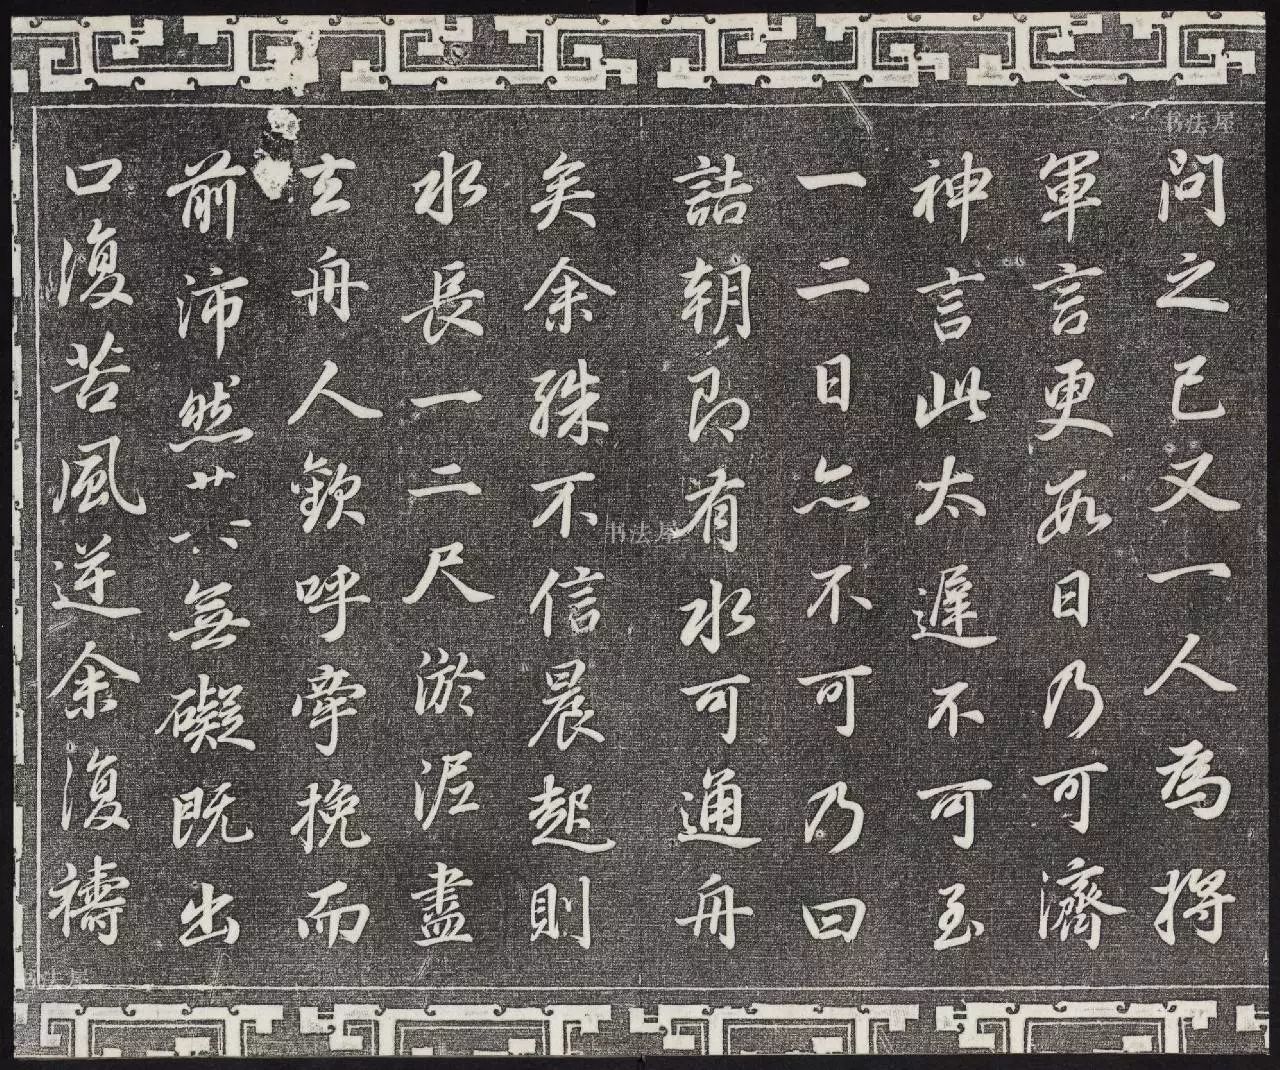 問之已又一人為將
軍言更數日乃可濟
神言此太遲不可至
一二日亦不可乃曰
詰朝即有水可通舟
矣余殊不信晨起則
水長一二尺淤泥盡
去舟人歡呼牽挽而
前沛然無礙既出
口復苦風逆余復禱
书法屋
书法屋
书法屋